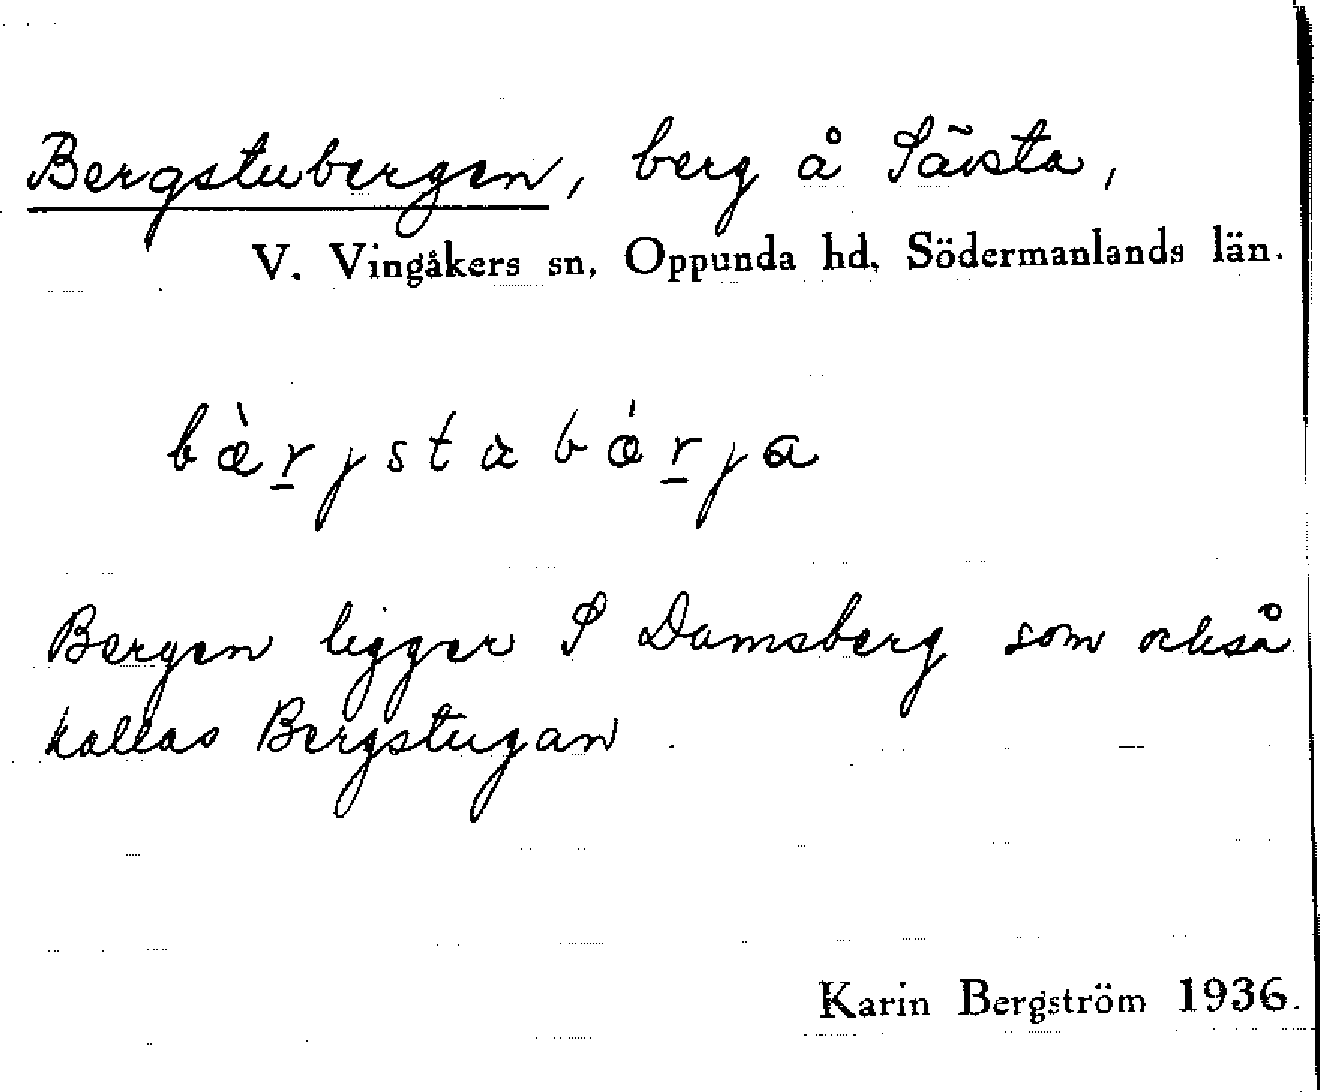 Bergstubergen, berg å Sävsta,
V. Vingåkers sn, Oppunda hd, Södermanlands län.
bæ̀r̲jstabǽr̲ja
Bergen ligger S Damsberg som också
kallas Bergstugan.
Karin Bergström 1936.